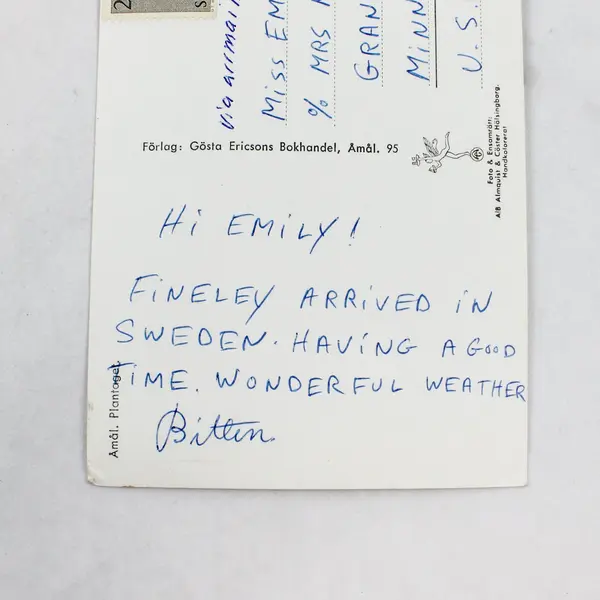 2
S
via airmail
MISS EM
% MRS
GRAN
MINN
U.S.
Förlag: Gösta Ericsons Bokhandel, Åmål. 95
Foto & Ensamrätt:
A/B Almquist & Cöster Hälsingborg.
Handkolorerat
Hi EMILY!
FINELEY ARRIVED IN
SWEDEN. HAVING A GOOD
TIME. WONDERFUL WEATHER
Bitten
Åmål. Plantaget.